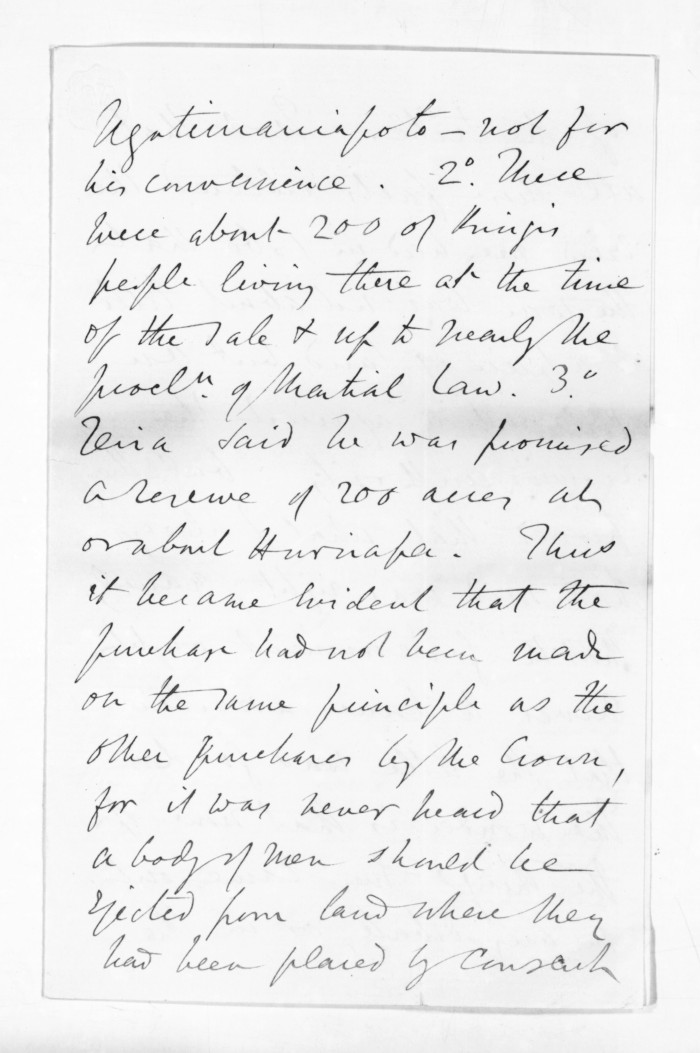 Ngatimaniapoto – not for
his convenience. 2º. There
were about 200 of Kingi's
people living there at the time
of the sale & up to nearly the
procl.n of Martial Law. 3.º
Teira said he was promised
a reserve of 200 acres at
or about Hurirapa. Thus
it became evident that the
purchase had not been made
on the same principle as the
other purchases by the Crown,
for it was never heard that
a body of men should be
ejected from land where they
had been placed by consent